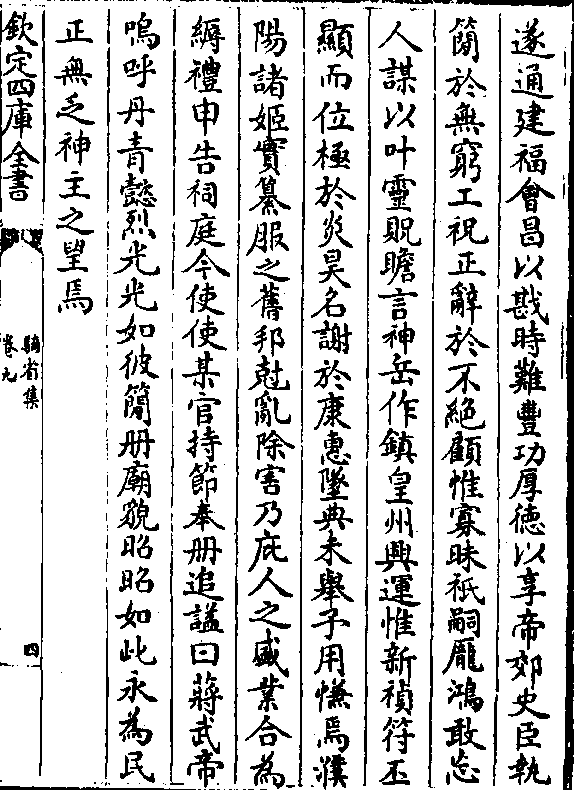 遂通建福會昌以戡時難豐功厚徳以享帝郊史臣執
簡於無窮工祝正辭於不絶顧惟寡昧祇嗣龎鴻敢忘
人謀以叶靈貺瞻言神岳作鎮皇州興運惟新禎符丕
顯而位極於炎昊名謝於康惠墜典未舉予用慊焉濮
陽諸姬實纂服之舊邦尅亂除害乃庇人之盛業合為
縟禮申告祠庭今使使某官持節奉册追諡曰蔣武帝
嗚呼丹青懿烈光光如彼簡册廟貌昭昭如此永為民
正無乏神主之望焉
欽定四庫全書
騎省集
卷九
四